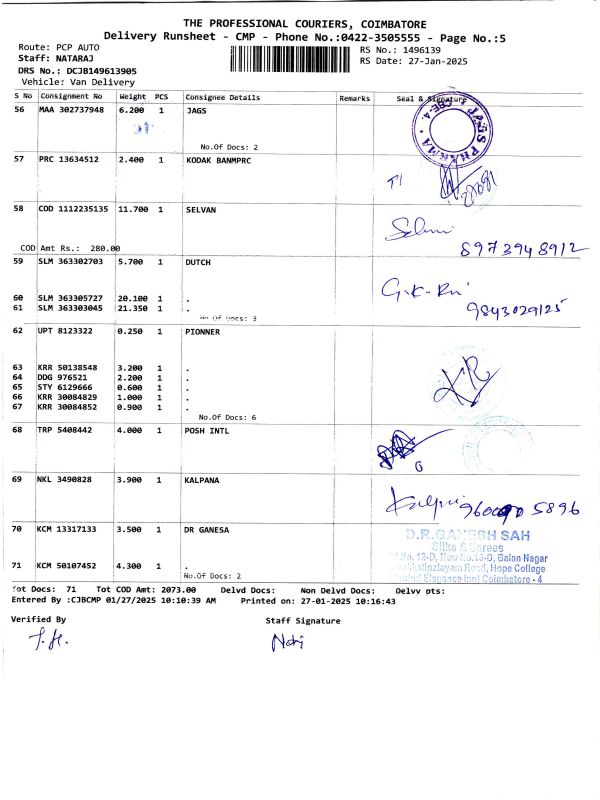 THE PROFESSIONAL COURIERS, COIMBATORE
Delivery Runsheet - CMP - Phone No.:0422-3505555 - Page No.:5
Route: PCP AUTO
RS No.: 1496139
Staff: NATARAJ
RS Date: 27-Jan-2025
DRS No.: DCJB149613905
Vehicle: Van Delivery
S No Consignment No Weight PCS Consignee Details Remarks Seal & Signature
56 MAA 302737948 6.200 1 JAGS
No.Of Docs: 2
JAGS PHARMA
57 PRC 13634512 2.400 1 KODAK BANMPRC
58 COD 1112235135 11.700 1 SELVAN
8973948912
COD Amt Rs.: 280.00
59 SLM 363302703 5.700 1 DUTCH
9843029125
60 SLM 363305727 20.100 1 .
61 SLM 363303045 21.350 1 .
No Of Docs: 3
62 UPT 8123322 0.250 1 PIONNER
63 KRR 50138548 3.200 1 .
64 DDG 976521 2.200 1 .
65 STY 6129666 0.600 1 .
66 KRR 30084829 1.000 1 .
67 KRR 30084852 0.900 1 .
No.Of Docs: 6
68 TRP 5408442 4.000 1 POSH INTL
69 NKL 3490828 3.900 1 KALPANA
70 KCM 13317133 3.500 1 DR GANESA
D.R.GANESH SAH
Silks & Sarees
No. 18-D, New No.15-D, Balan Nagar
Road, Hope College
Behind Elegance Inn! Coimbatore - 4
71 KCM 50107452 4.300 1 .
No.Of Docs: 2
Tot Docs: 71 Tot COD Amt: 2073.00 Delvd Docs: Non Delvd Docs: Delvv pts:
Entered By :CJBCMP 01/27/2025 10:10:39 AM Printed on: 27-01-2025 10:16:43
Verified By Staff Signature